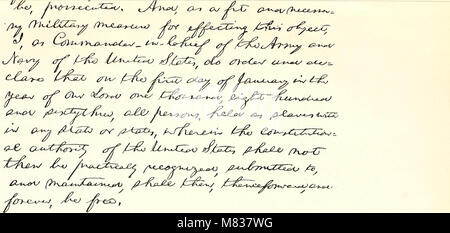 be, prosecuted. And, as a fit and neces-
ry military measure for effecting this object,
I, as Commander-in-Chief of the Army and
Navy of the United States, do order and de-
clare that on the first day of January in the
year of our Lord one thousand, eight hundred
and sixtythree, all persons, held as slaves with
in any state or states, wherein the constitution-
al authority of the United States shall not
then be practically recognized, submitted to,
and maintained, shall then, thenceforward, and
forever, be free.
alamy
M837WG